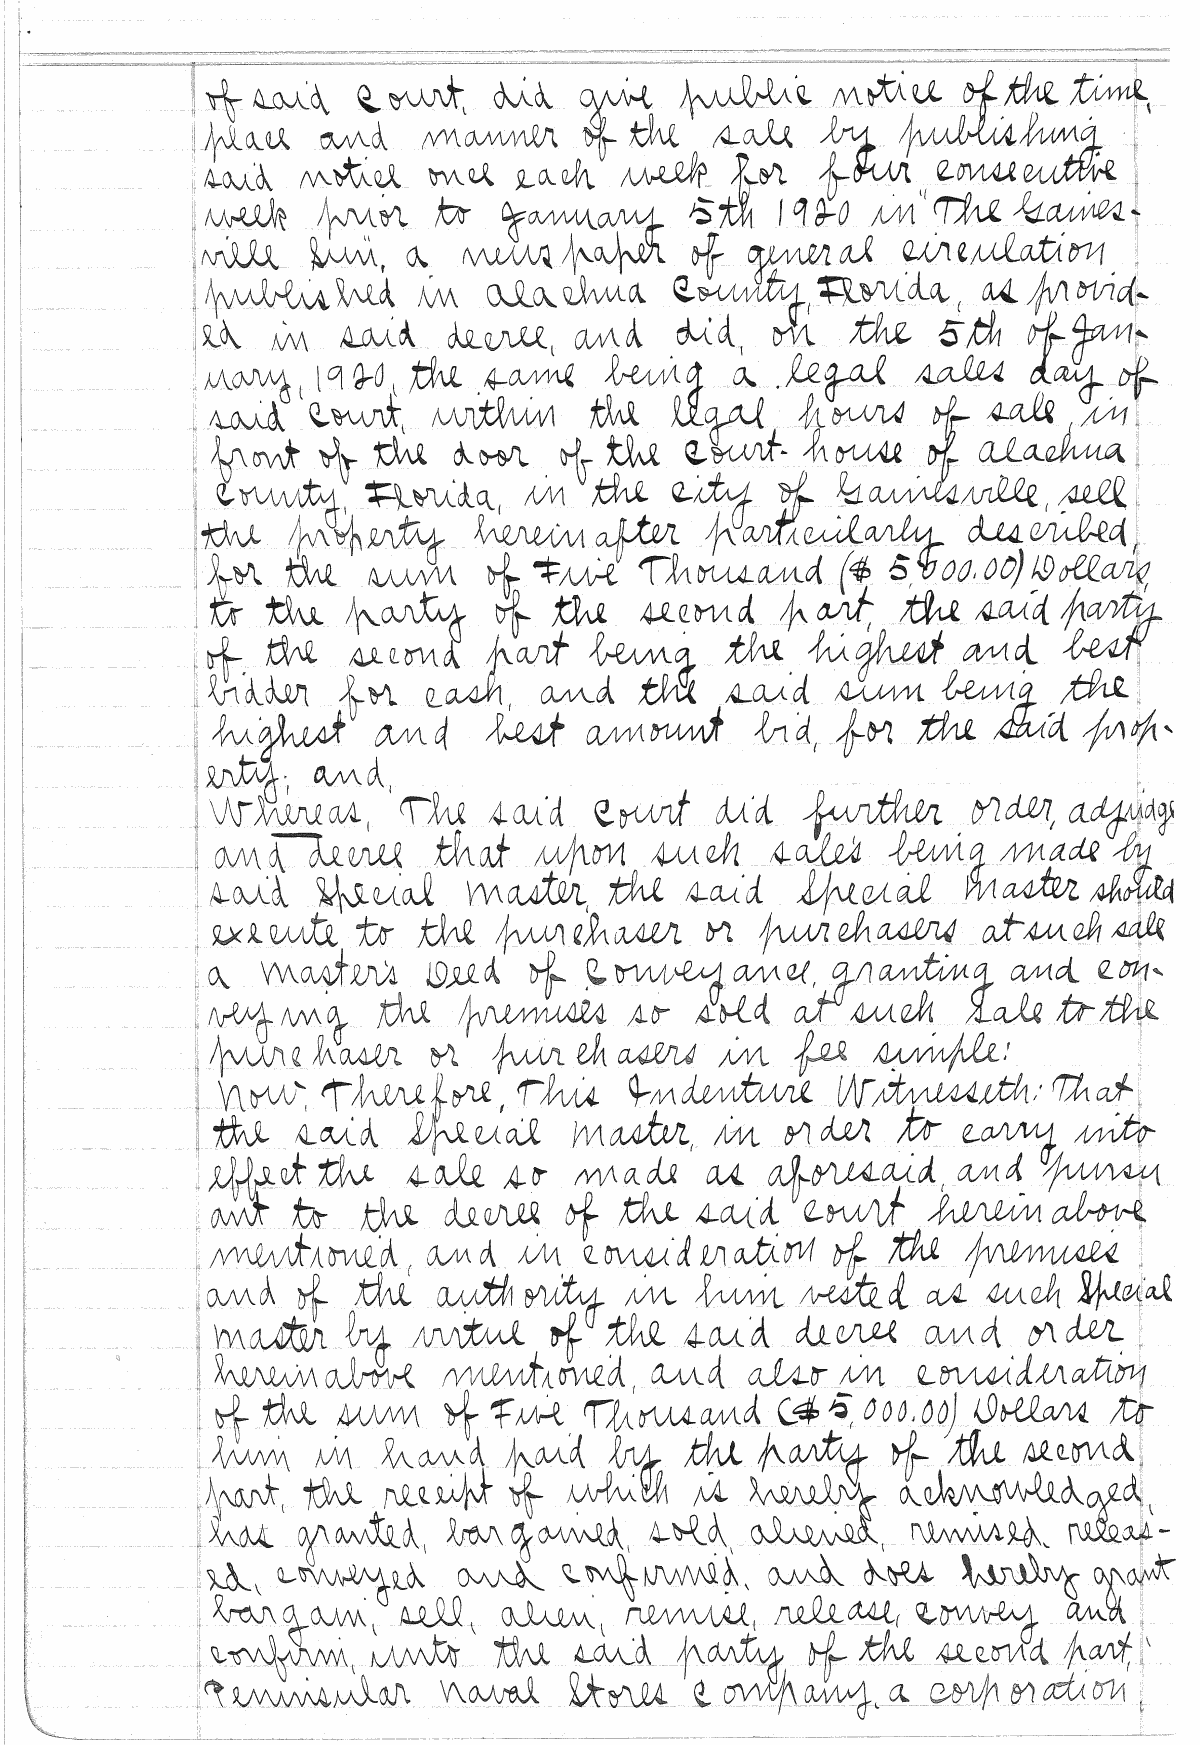 of said Court, did give public notice of the time,
place and manner of the sale by publishing
said notice once each week for four consecutive
week prior to January 5th 1920 in "The Gaines-
ville Sun", a newspaper of general circulation
published in Alachua County, Florida, as provid-
ed in said decree, and did, on the 5th of Jan-
uary, 1920, the same being a legal sales day of
said Court, within the legal hours of sale, in
front of the door of the Court-house of Alachua
County, Florida, in the city of Gainesville, sell
the property hereinafter particularly described,
for the sum of Five Thousand ($ 5,000.00) Dollars
to the party of the second part, the said party
of the second part being the highest and best
bidder for cash, and the said sum being the
highest and best amount bid, for the said prop-
erty; and,
Whereas, The said Court did further order, adjudge
and decree that upon such sales being made by
said Special Master, the said Special Master should
execute to the purchaser or purchasers at such sale
a Master's Deed of Conveyance, granting and con-
veying the premises so sold at such sale to the
purchaser or purchasers in fee simple:
Now, Therefore, This Indenture Witnesseth: That
the said Special Master, in order to carry into
effect the sale so made as aforesaid, and pursu
ant to the decree of the said court hereinabove
mentioned, and in consideration of the premises
and of the authority in him vested as such Special
Master by virtue of the said decree and order
hereinabove mentioned, and also in consideration
of the sum of Five Thousand ($5,000.00) Dollars to
him in hand paid by the party of the second
part, the receipt of which is hereby acknowledged,
has granted, bargained, sold, aliened, remised, releas-
ed, conveyed and confirmed, and does hereby grant
bargain, sell, alien, remise, release, convey and
confirm, unto the said party of the second part,
Peninsular Naval Stores Company, a corporation